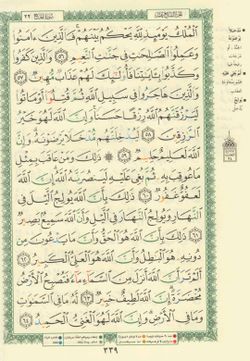 الجزء السابع عشر سورة الحج ٢٢
ٱلْمُلْكُ يَوْمَئِذٍ لِّلَّهِ يَحْكُمُ بَيْنَهُمْ فَٱلَّذِينَ ءَامَنُوا۟
وَعَمِلُوا۟ ٱلصَّٰلِحَٰتِ فِى جَنَّٰتِ ٱلنَّعِيمِ ٥٦ وَٱلَّذِينَ كَفَرُوا۟
وَكَذَّبُوا۟ بِـَٔايَٰتِنَا فَأُو۟لَٰٓئِكَ لَهُمْ عَذَابٌ مُّهِينٌ ٥٧
وَٱلَّذِينَ هَاجَرُوا۟ فِى سَبِيلِ ٱللَّهِ ثُمَّ قُتِلُوٓا۟ أَوْ مَاتُوا۟
لَيَرْزُقَنَّهُمُ ٱللَّهُ رِزْقًا حَسَنًا وَإِنَّ ٱللَّهَ لَهُوَ خَيْرُ
ٱلرَّٰزِقِينَ ٥٨ لَيُدْخِلَنَّهُم مُّدْخَلًا يَرْضَوْنَهُۥ وَإِنَّ
ٱللَّهَ لَعَلِيمٌ حَلِيمٌ ٥٩ ۞ ذَٰلِكَ وَمَنْ عَاقَبَ بِمِثْلِ
مَا عُوقِبَ بِهِۦ ثُمَّ بُغِىَ عَلَيْهِ لَيَنصُرَنَّهُ ٱللَّهُ إِنَّ ٱللَّهَ
لَعَفُوٌّ غَفُورٌ ٦٠ ذَٰلِكَ بِأَنَّ ٱللَّهَ يُولِجُ ٱلَّيْلَ فِى
ٱلنَّهَارِ وَيُولِجُ ٱلنَّهَارَ فِى ٱلَّيْلِ وَأَنَّ ٱللَّهَ سَمِيعٌۢ بَصِيرٌ
٦١ ذَٰلِكَ بِأَنَّ ٱللَّهَ هُوَ ٱلْحَقُّ وَأَنَّ مَا يَدْعُونَ مِن
دُونِهِۦ هُوَ ٱلْبَٰطِلُ وَأَنَّ ٱللَّهَ هُوَ ٱلْعَلِىُّ ٱلْكَبِيرُ ٦٢
أَلَمْ تَرَ أَنَّ ٱللَّهَ أَنزَلَ مِنَ ٱلسَّمَآءِ مَآءً فَتُصْبِحُ ٱلْأَرْضُ
مُخْضَرَّةً إِنَّ ٱللَّهَ لَطِيفٌ خَبِيرٌ ٦٣ لَّهُۥ مَا فِى ٱلسَّمَٰوَٰتِ
وَمَا فِى ٱلْأَرْضِ وَإِنَّ ٱللَّهَ لَهُوَ ٱلْغَنِىُّ ٱلْحَمِيدُ ٦٤
٣٣٩